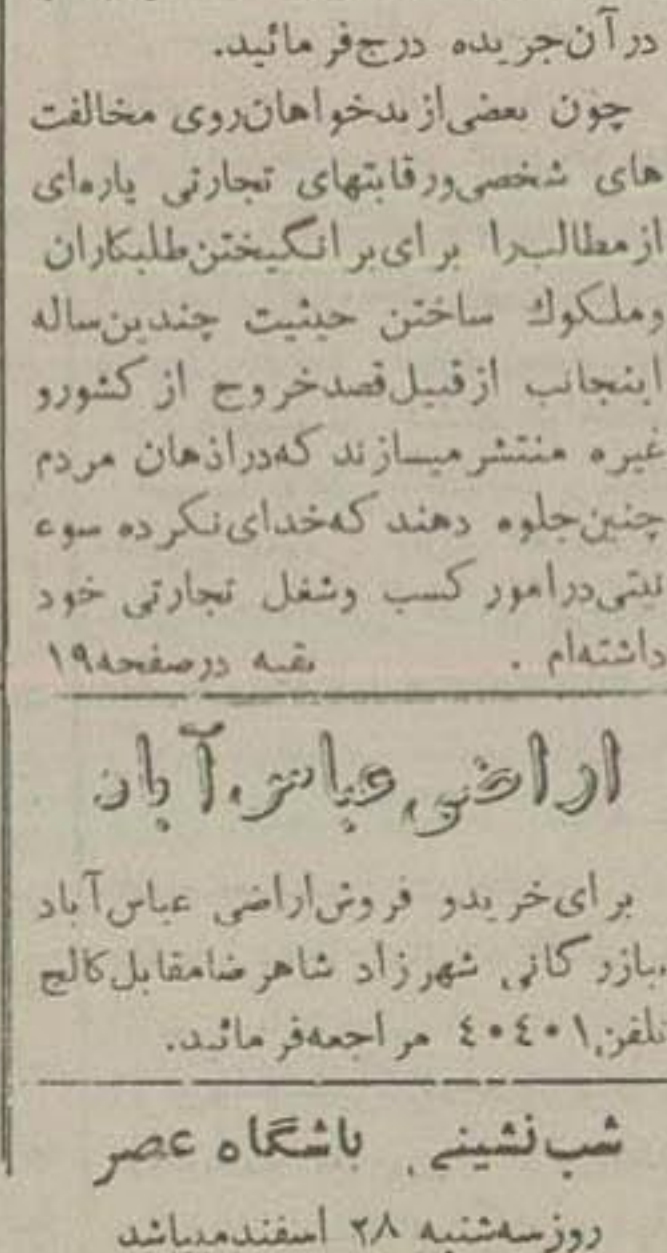 در آن جریده درج فرمائید.
چون بعضی از بدخواهان روی مخالفت
های شخصی و رقابتهای تجارتی پاره‌ای
از مطالب را برای برانگیختن طلبکاران
و ملکوك ساختن حیثیت چندین ساله
اینجانب از قبیل قصد خروج از کشور و
غیره منتشر میسازند که در اذهان مردم
چنین جلوه دهند که خدای نکرده سوء
نیتی در امور کسب و شغل تجارتی خود
داشته‌ام . بقیه در صفحه ۱۹
اراضی عباس آباد
برای خرید و فروش اراضی عباس آباد
ببازرگانی شهرزاد شاهرضا مقابل کالج
تلفن ٤٠٤٠١ مراجعه فرمائید.
شب نشینی باشگاه عصر
روز سه‌شنبه ۲۸ اسفند میباشد